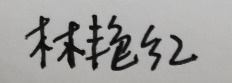 林艳红